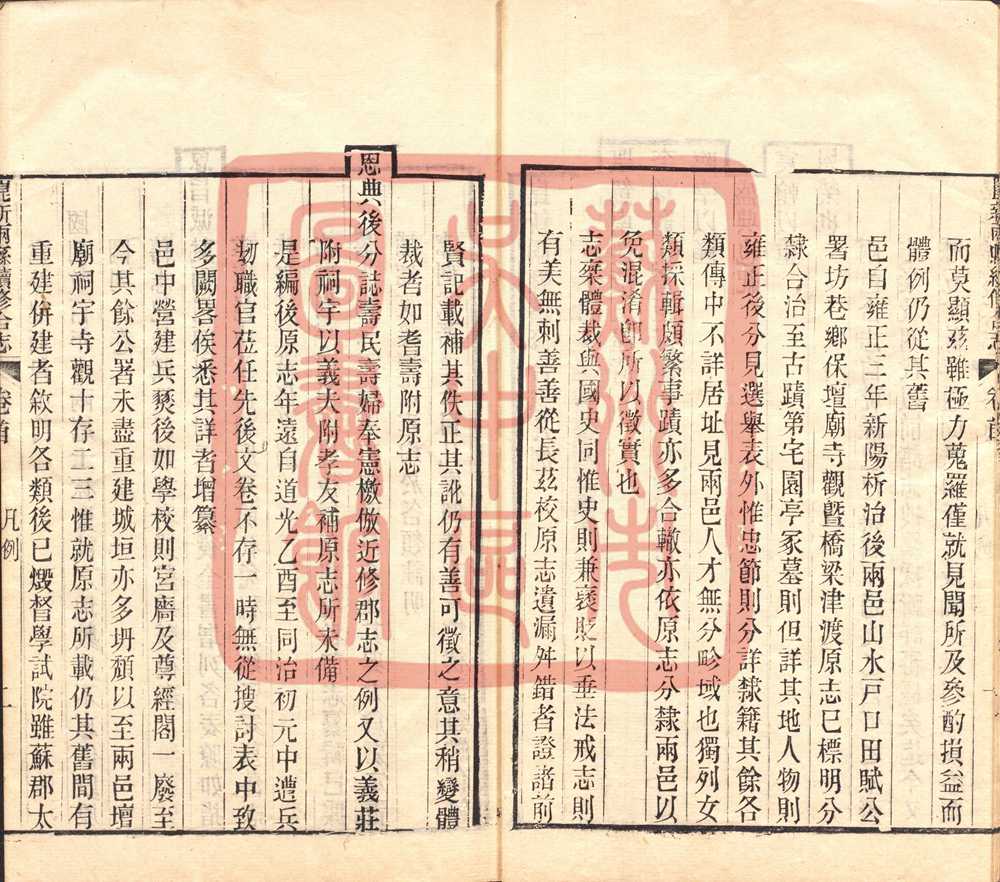 而莫顯茲雖極力蒐羅僅就見聞所及參酌損益而
體例仍從其舊
邑自雍正三年新陽析治後兩邑山水戸口田賦公
署坊巷鄉保壇廟寺觀曁橋梁津渡原志已標明分
隸合治至古蹟第宅園亭冢墓則但詳其地人物則
雍正後分見選舉表外惟忠節則分詳隸籍其餘各
類傳中不詳居址見兩邑人才無分畛域也獨列女
類採輯頗繁事蹟亦多合轍亦依原志分隸兩邑以
免混淆卽所以徵實也
志乘體裁與國史同惟史則兼褒貶以垂法戒志則
有美無刺善善從長茲校原志遺漏舛錯者證諸前
賢記載補其佚正其訛仍有善可徵之意其稍變體
裁者如耆壽附原志
恩典後分誌壽民壽婦奉憲檄倣近修郡志之例又以義莊
附祠宇以義夫附孝友補原志所未備
是編後原志年遠自道光乙酉至同治初元中遭兵
刧職官莅任先後文卷不存一時無從搜討表中致
多闕畧俟悉其詳者增纂
邑中營建兵燹後如學校則宮廧及尊經閣一廢至
今其餘公署未盡重建城垣亦多坍頽以至兩邑壇
廟祠宇寺觀十存二三惟就原志所載仍其舊間有
重建併建者敘明各類後已燬督學試院雖蘇郡太
崑新兩縣續修合志
卷首
凡例
二
蘇州市
吳中區
圖書館